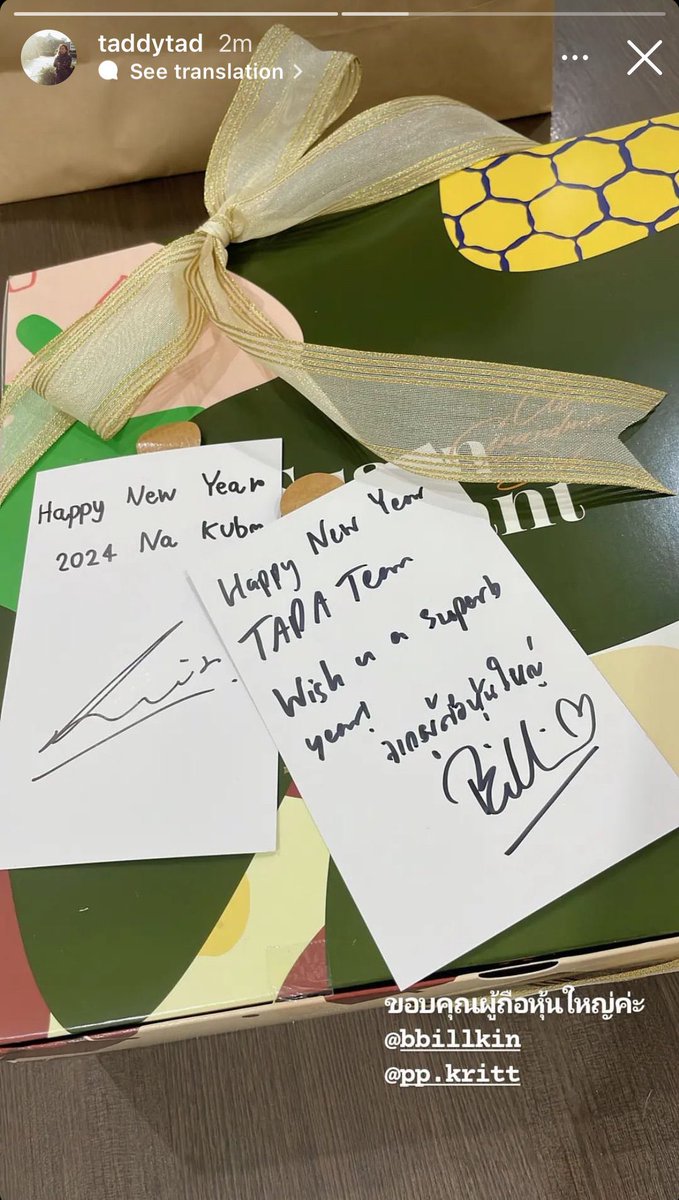 taddytad 2m
See translation
Happy New Year
2024 Na Kubm
Happy New Year
TADA Team
Wish u a superb
year!
จากผู้ถือหุ้นใหญ่
Billi
ant
ขอบคุณผู้ถือหุ้นใหญ่ค่ะ
@bbillkin
@pp.kritt